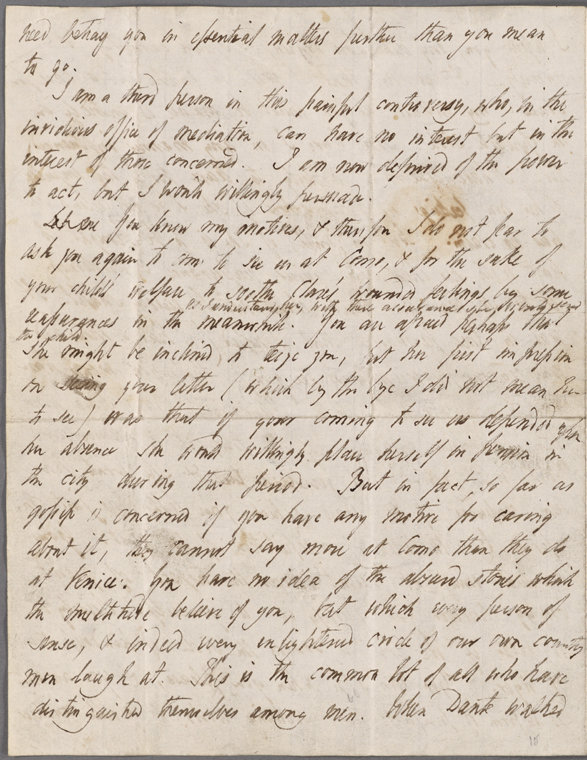 need betray you in essential matters further than you mean
to go.
I am a third person in this painful controversy, who, in the
invidious office of mediation, can have no interest but in the
interest of those concerned. I am now deprived of the power
to act, but I would willingly persuade.
you know my motives, & therefore I do not fear to
ask you again to come to see us at Como, & for the sake of
your child's welfare to soothe Clare's wounded feelings by some
assurances in the meanwhile. You are afraid perhaps that
she might be inclined to teize you, but her first impression
on seeing your letter (which by the bye I did not mean her
to see) was that if your coming to see us depended upon
her absence she would willingly place herself in in
the city during that period. But in fact, so far as
gossip is concerned if you have any motive for caring
about it, they cannot say more at Como than they do
at Venice. You have no idea of the absurd stories which
the multitude believe of you, but which every person of
sense, & indeed every enlightened circle of our own country
men laugh at. This is the common lot of all who have
distinguished themselves among men. When Dante walked